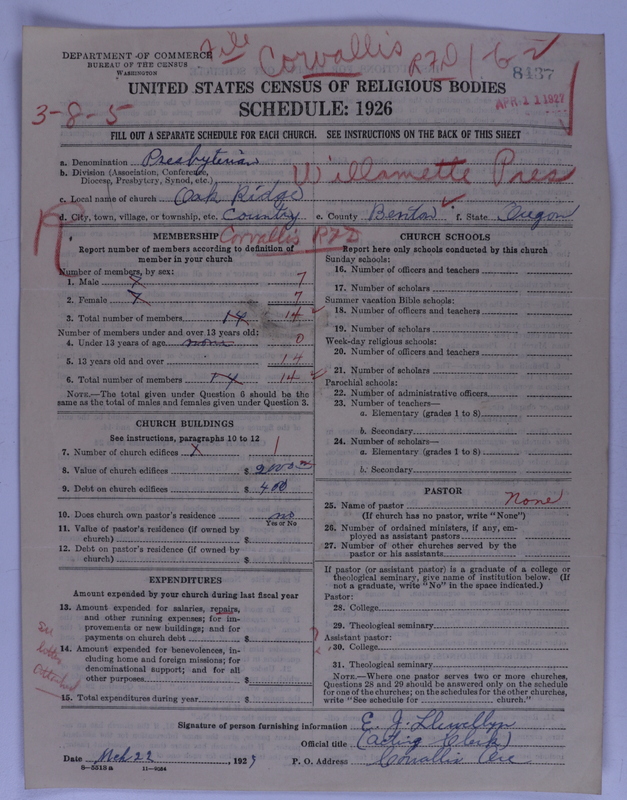 File Corvallis RFD 1 62
8437
APR-11 1927
DEPARTMENT OF COMMERCE
BUREAU OF THE CENSUS
WASHINGTON
UNITED STATES CENSUS OF RELIGIOUS BODIES
3-8-5
SCHEDULE: 1926
FILL OUT A SEPARATE SCHEDULE FOR EACH CHURCH. SEE INSTRUCTIONS ON THE BACK OF THIS SHEET
a. Denomination Presbyterian
b. Division (Association, Conference, Diocese, Presbytery, Synod, etc.) Willamette Pres
c. Local name of church Oak Ridge
d. City, town, village, or township, etc. Country e. County Benton f. State Oregon
Corvallis RFD
R
MEMBERSHIP
Report number of members according to definition of
member in your church
Number of members, by sex:
1. Male 7 7
2. Female 7 7
3. Total number of members 14 14
Number of members under and over 13 years old:
4. Under 13 years of age none 0
5. 13 years old and over 14
6. Total number of members 14 14
NOTE.—The total given under Question 6 should be the
same as the total of males and females given under Question 3.
CHURCH BUILDINGS
See instructions, paragraphs 10 to 12
7. Number of church edifices 1
8. Value of church edifices $ 2000.00
9. Debt on church edifices $ 400
10. Does church own pastor's residence no
Yes or No
11. Value of pastor's residence (if owned by
church) $
12. Debt on pastor's residence (if owned by
church) $
EXPENDITURES
Amount expended by your church during last fiscal year
13. Amount expended for salaries, repairs,
and other running expenses; for im-
provements or new buildings; and for
payments on church debt $
14. Amount expended for benevolences, in-
cluding home and foreign missions; for
denominational support; and for all
other purposes $
15. Total expenditures during year $
See
letter
Attached
CHURCH SCHOOLS
Report here only schools conducted by this church
Sunday schools:
16. Number of officers and teachers
17. Number of scholars
Summer vacation Bible schools:
18. Number of officers and teachers
19. Number of scholars
Week-day religious schools:
20. Number of officers and teachers
21. Number of scholars
Parochial schools:
22. Number of administrative officers
23. Number of teachers—
a. Elementary (grades 1 to 8)
b. Secondary
24. Number of scholars—
a. Elementary (grades 1 to 8)
b. Secondary
PASTOR
25. Name of pastor None
(If church has no pastor, write "None")
26. Number of ordained ministers, if any, em-
ployed as assistant pastors
27. Number of other churches served by the
pastor or his assistants
If pastor (or assistant pastor) is a graduate of a college or
theological seminary, give name of institution below. (If
not a graduate, write "No" in the space indicated.)
Pastor:
28. College
29. Theological seminary
Assistant pastor:
30. College
31. Theological seminary
NOTE.—Where one pastor serves two or more churches,
Questions 28 and 29 should be answered only on the schedule
for one of the churches; on the schedules for the other churches,
write "See schedule for church."
Signature of person furnishing information E. J. Llewellyn
Official title (Acting Clerk)
Date Mch 22, 1927 P. O. Address Corvallis Ore
8-5513 a 11-9024